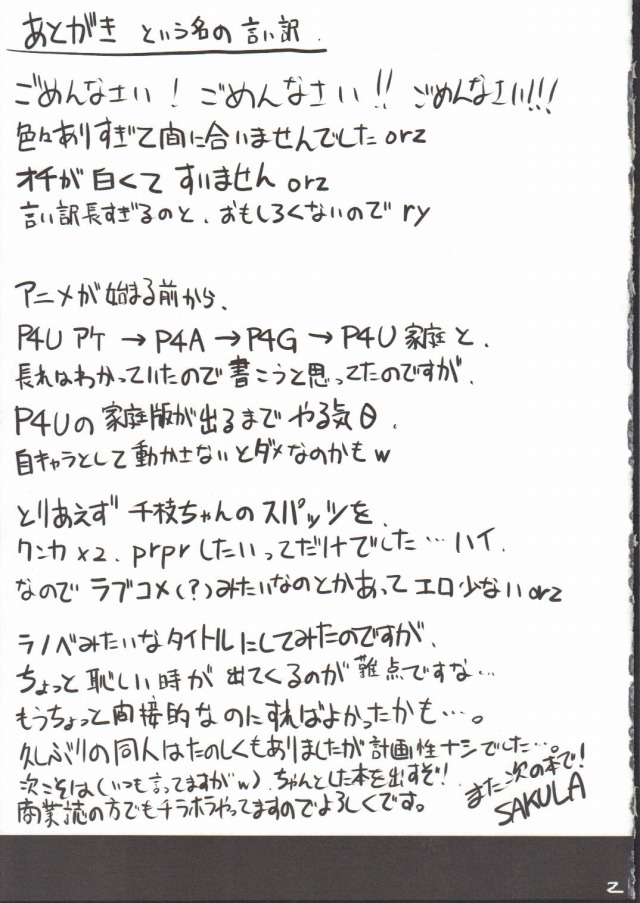 あとがき という名の言い訳.
ごめんなさい! ごめんなさい!! ごめんなさい!!!
色々ありすぎて間に合いませんでした orz
オチが白くて すいません orz
言い訳長すぎるのと、おもしろくないので ry
アニメが始まる前から、
P4U アケ → P4A → P4G → P4U 家庭 と、
長れはわかっていたので書こうと思ってたのですが、
P4Uの家庭版が出るまでやる気0、
自キャラとして動かさないとダメなのかもw
とりあえず千枝ちゃんのスパッツを、
クンカ×2、prprしたいってだけでした…ハイ、
なので ラブコメ(?)みたいなのとかあって エロ少ない orz
ラノベみたいなタイトルにしてみたのですが、
ちょっと恥しい時が出てくるのが難点ですな…
もうちょっと間接的なのにすればよかったかも…。
久しぶりの同人はたのしくもありましたが計画性ナシでした…。
次こそは(いつも言ってますがw)、ちゃんとした本を出すぞ!
商業誌の方でもチラホラやってますのでよろしくです。
また次の本で!
SAKULA
2